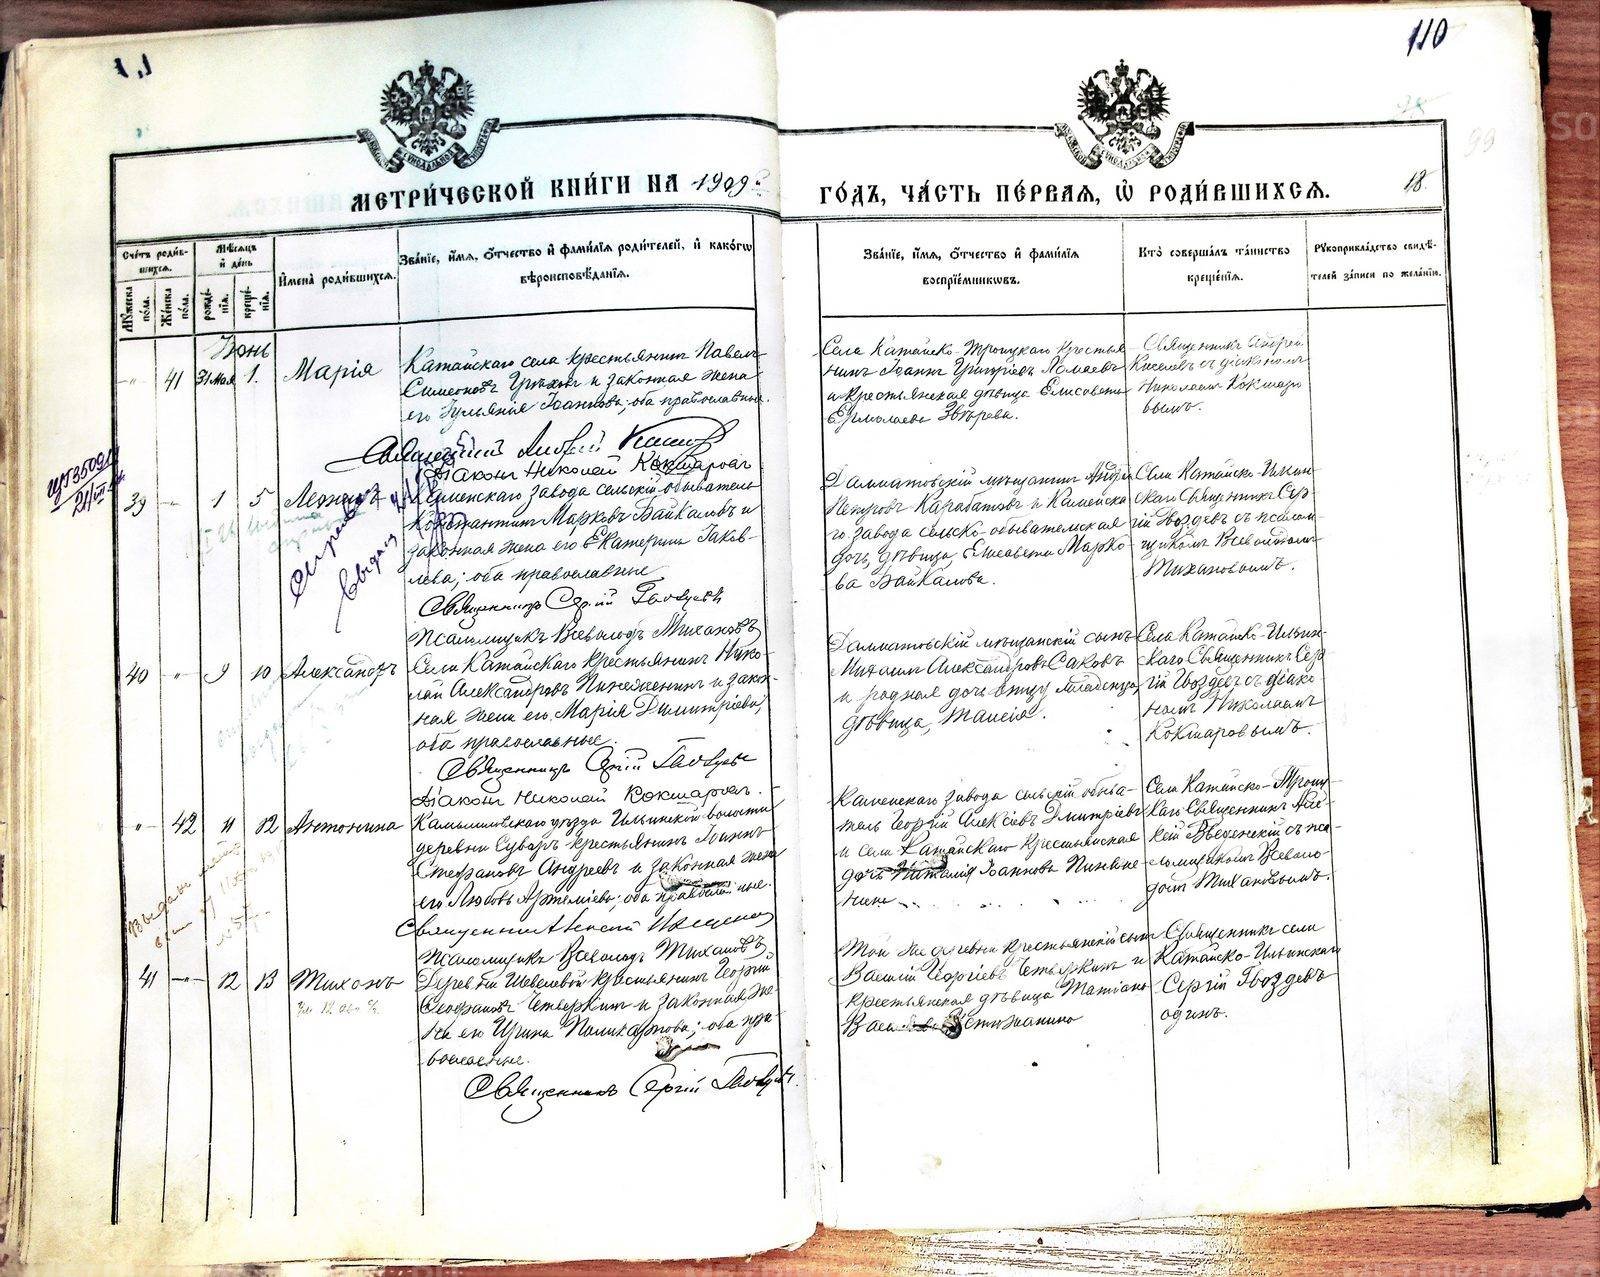 110
МЕТРИ́ЧЕСКОЙ КНИ́ГИ НА 1909
ГО́ДЪ, ЧА́СТЬ ПЕ́РВАЯ, Ѡ҆ РОДИ́ВШИХСЯ.
18.
Сче́тъ роди́в-
шихся.
Му́жеска по́ла.
Же́нска по́ла.
Мѣ́сяцъ и҆ де́нь
рожде́-
нїя.
креще́-
нїя.
И҆мена̀ роди́вшихся.
Зва́нїе, и҆́мя, ѻ҆́тчество и҆ фами́лїя роди́телей, и҆ како́гѡ
вѣроисповѣ́данїя.
Зва́нїе, и҆́мя, ѻ҆́тчество и҆ фами́лїя
воспрїе́мниковъ.
Кто̀ соверша́лъ та́инство
креще́нїя.
Рукоприкла́дство свидѣ́-
телей за́писи по жела́нїю.
Іюнь
41 31 Мая 1. Марія
Катайскаго села крестьянинъ Павелъ
Симеоновъ и законная жена
его Іоаннова; оба православные.
Села Катайско-Троицкаго крестья-
нинъ Іоаннъ Григоріевъ
и крестьянская дѣвица Елисавета
Ермолаева Звѣрева.
Священникъ Андрей
Киселевъ съ діакономъ
Николаемъ Кокшаро-
вымъ.
Священникъ Андрей Киселев
Діаконъ Николай Кокшаровъ
39 1 5 Леонидъ
Каменскаго завода сельскій обыватель
Константинъ Марковъ Байкаловъ и
законная жена его Екатерина Іаков-
лева; оба православные
Далматовскій мѣщанинъ Андрей
Петровъ Карабатовъ и Каменска-
го завода сельско-обывательская
дочь, дѣвица, Елисавета Марко-
ва Байкалова.
Села Катайско-Ильин-
скаго Священникъ Сер-
гій Гвоздевъ съ псалом-
щикомъ Всеволодомъ
Тихановымъ.
Священникъ Сергій Гвоздевъ
Псаломщикъ Всеволодъ Тихановъ
40 9 10 Александръ
Села Катайскаго крестьянинъ Нико-
лай Александровъ Пинеженинъ и закон-
ная жена его Марія Димитріева,
оба православные.
Далматовскій мѣщанскій сынъ
Михаилъ Александровъ Саковъ
и родная дочь отцу младенца,
дѣвица, Таисія.
Села Катайско-Ильин-
скаго Священникъ Сер-
гій Гвоздевъ съ діако-
номъ Николаемъ
Кокшаровымъ.
Священникъ Сергій Гвоздевъ
Діаконъ Николай Кокшаровъ.
42 11 12 Антонина
Камышловскаго уѣзда Ильинской волости
деревни крестьянинъ Іоаннъ
Стефановъ Андреевъ и законная жена
его Любовь Артеміева; оба православные.
Каменскаго завода сельскій обыва-
тель Георгій Алексіевъ Дмитріевъ
и села Катайскаго крестьянская
дочь Іоаннова Пинеже-
нина
Села Катайско-Троиц-
каго Священникъ Алек-
сій Введенскій съ пса-
ломщикомъ Всеволо-
домъ Тихановымъ.
Священникъ Алексій
Псаломщикъ Всеволодъ Тихановъ
41 12 13 Тихонъ
Деревни Шевелевой крестьянинъ Георгій
Четверкинъ и законная же-
на его Ирина Поликарпова; оба пра-
вославные.
Той же деревни крестьянскій сынъ
Василій Георгіевъ Четверкинъ и
крестьянская дѣвица Татіана
Священникъ села
Катайско-Ильинскаго
Сергій Гвоздевъ
одинъ.
Священникъ Сергій Гвоздевъ.